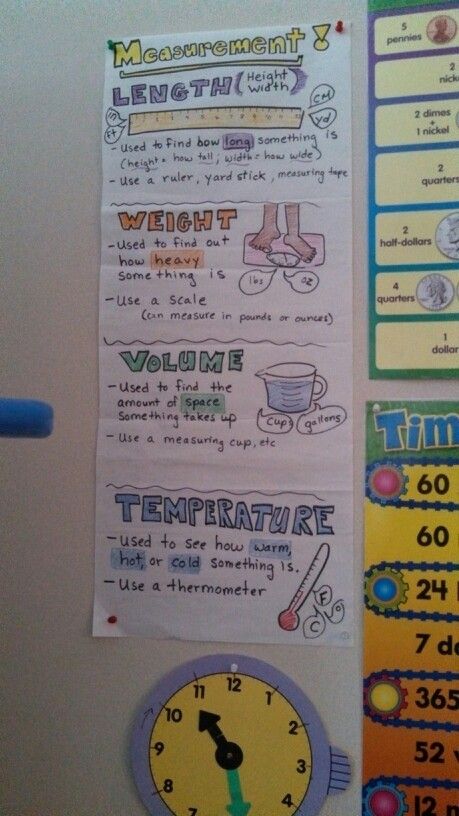 Measurement!
LENGTH (Height
Width)
in
ft
CM
yd
- Used to find how long something is
(height = how tall; width = how wide)
- Use a ruler, yard stick, measuring tape
WEIGHT
- Used to find out
how heavy
something is
- Use a scale
(can measure in pounds or ounces)
lbs
oz
VOLUME
- Used to find the
amount of space
something takes up
- Use a measuring cup, etc
cups
gallons
TEMPERATURE
- Used to see how warm,
hot, or cold something is.
- Use a thermometer
F
C
5
pennies
2
2 dimes
+
1 nickel
2
quarters
2
half-dollars
4
quarters
1
dollar
Tim
60
60
24
7
365
52
12
11
12
1
10
2
9
3
8
4
7